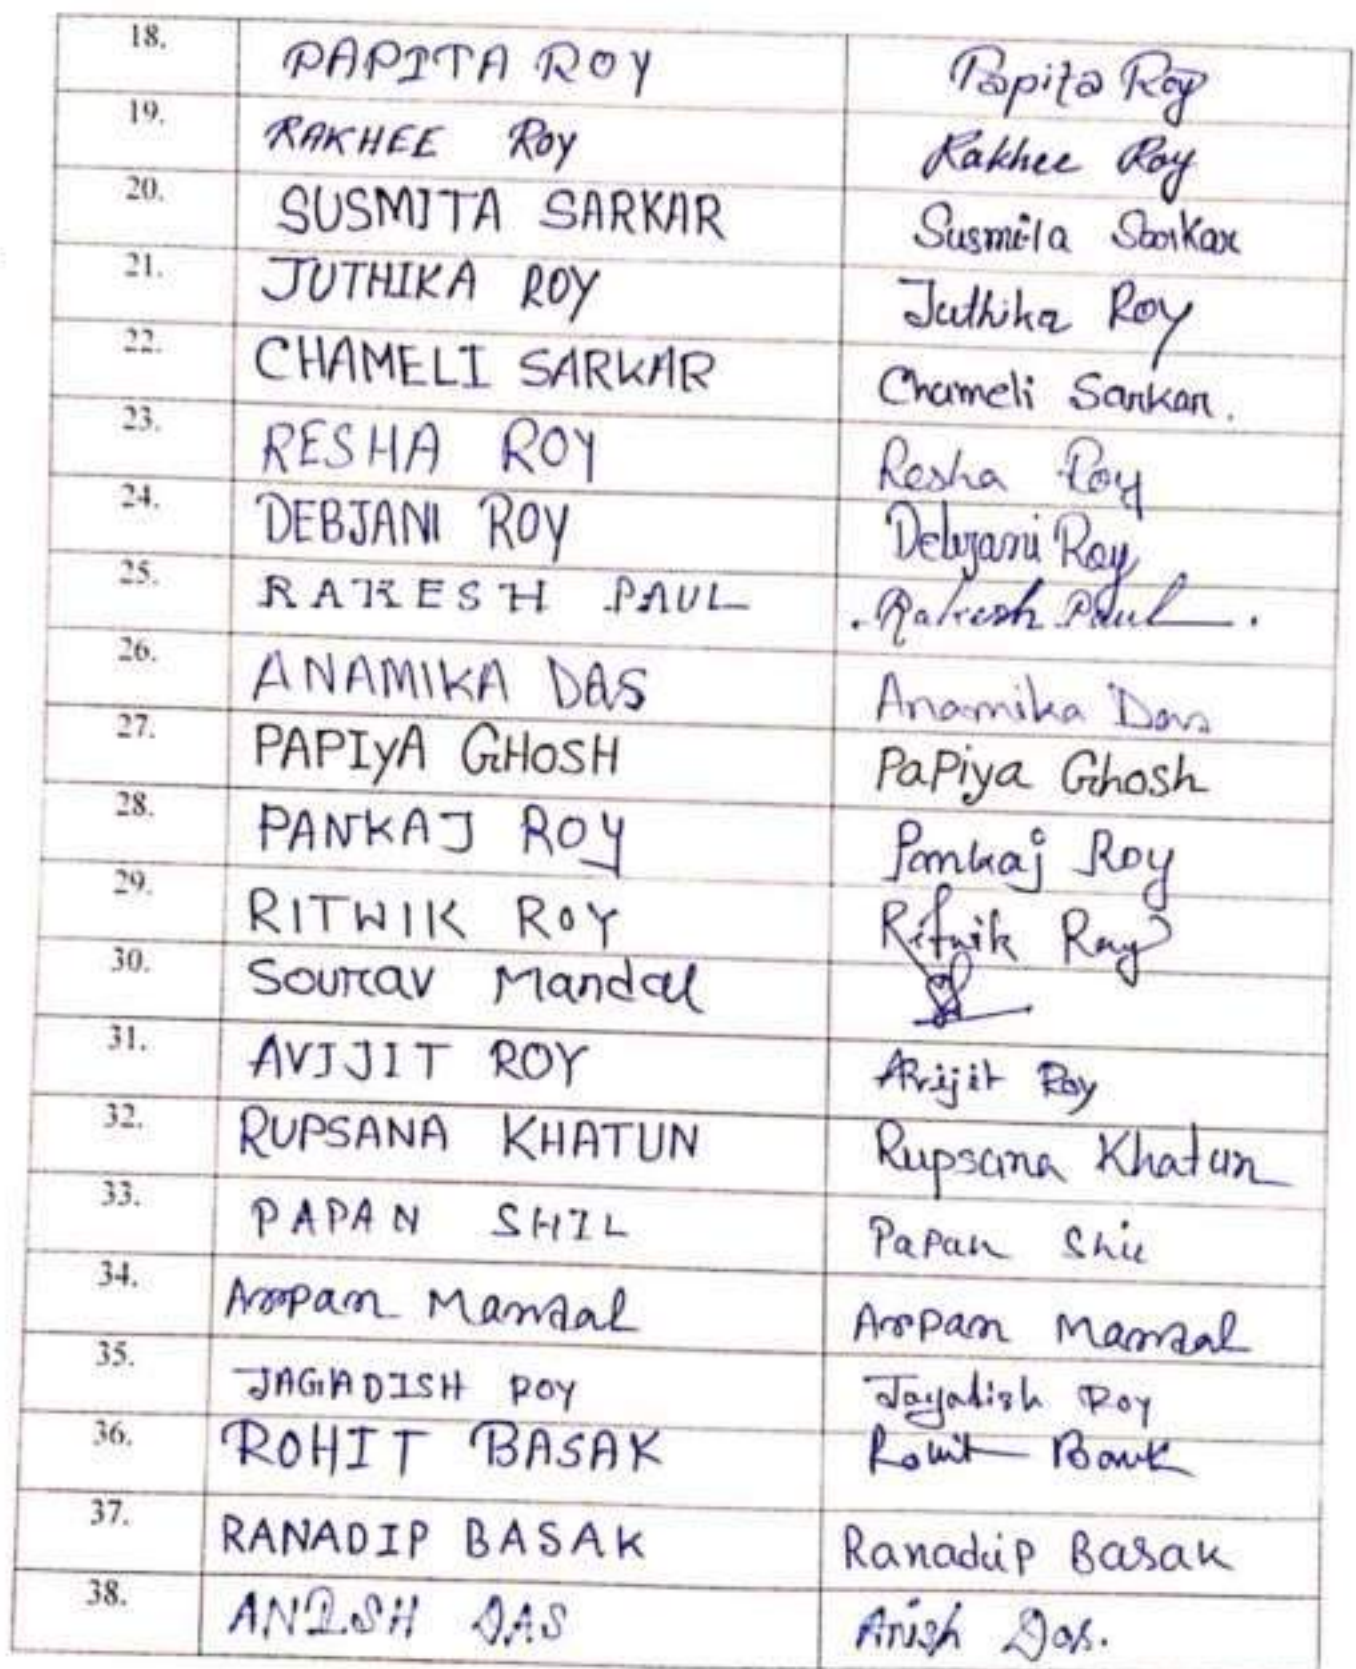 18. PAPITA ROY Papita Roy
19. RAKHEE ROY Rakhee Roy
20. SUSMITA SARKAR Susmita Sarkar
21. JUTHIKA ROY Juthika Roy
22. CHAMELI SARKAR Chameli Sarkar.
23. RESHA ROY Resha Roy
24. DEBJANI ROY Debjani Roy
25. RAKESH PAUL Rakesh Paul
26. ANAMIKA DAS Anamika Das
27. PAPIYA GHOSH PaPiya Ghosh
28. PANKAJ ROY Pankaj Roy
29. RITWIK ROY Ritwik Roy
30. Sourav Mandal
31. AVIJIT ROY Avijit Roy
32. RUPSANA KHATUN Rupsana Khatun
33. PAPAN SHIL PaPan Shil
34. Arpan Mandal Arpan Mandal
35. JAGADISH ROY Jagadish Roy
36. ROHIT BASAK Rohit Basak
37. RANADIP BASAK Ranadip Basak
38. ANISH DAS Anish Das.